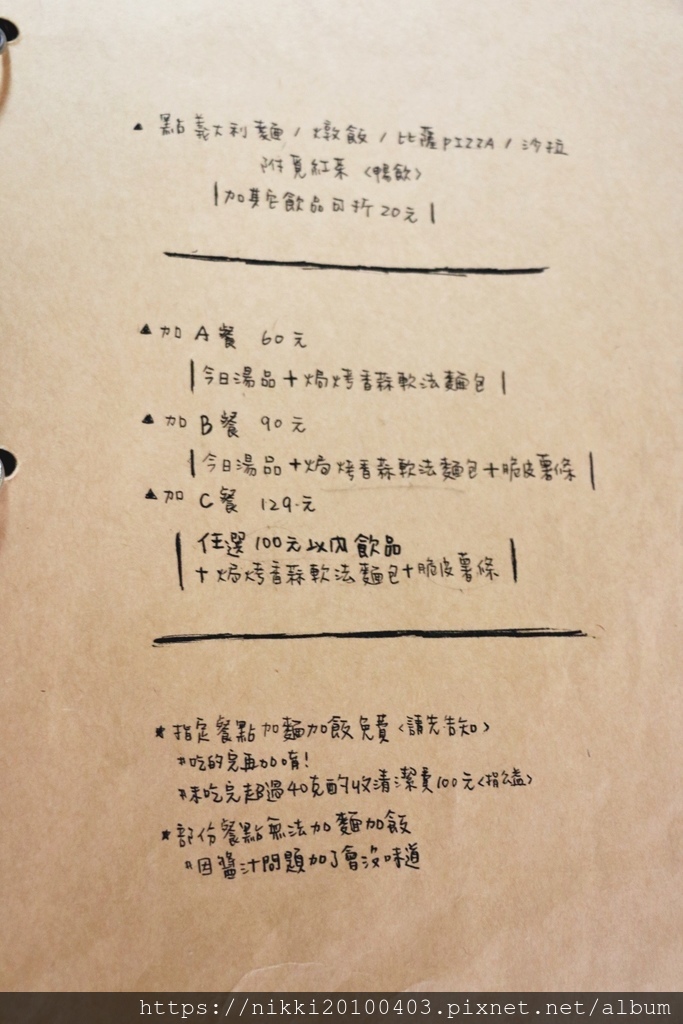 ▲ 點義大利麵 / 燉飯 / 比薩PIZZA / 沙拉
附覓紅茶〈暢飲〉
|加其它飲品可折20元|
▲ 加 A餐 60元
|今日湯品+焗烤香蒜軟法麵包|
▲ 加 B餐 90元
|今日湯品+焗烤香蒜軟法麵包+脆皮薯條|
▲ 加 C餐 129元
|任選100元以內飲品
+焗烤香蒜軟法麵包+脆皮薯條|
★ 指定餐點加麵加飯免費〈請先告知〉
〃吃的完再加唷!
〃未吃完超過40克酌收清潔費100元〈捐公益〉
★ 部份餐點無法加麵加飯
〃因醬汁問題加了會沒味道
https://nikki20100403.pixnet.net/album